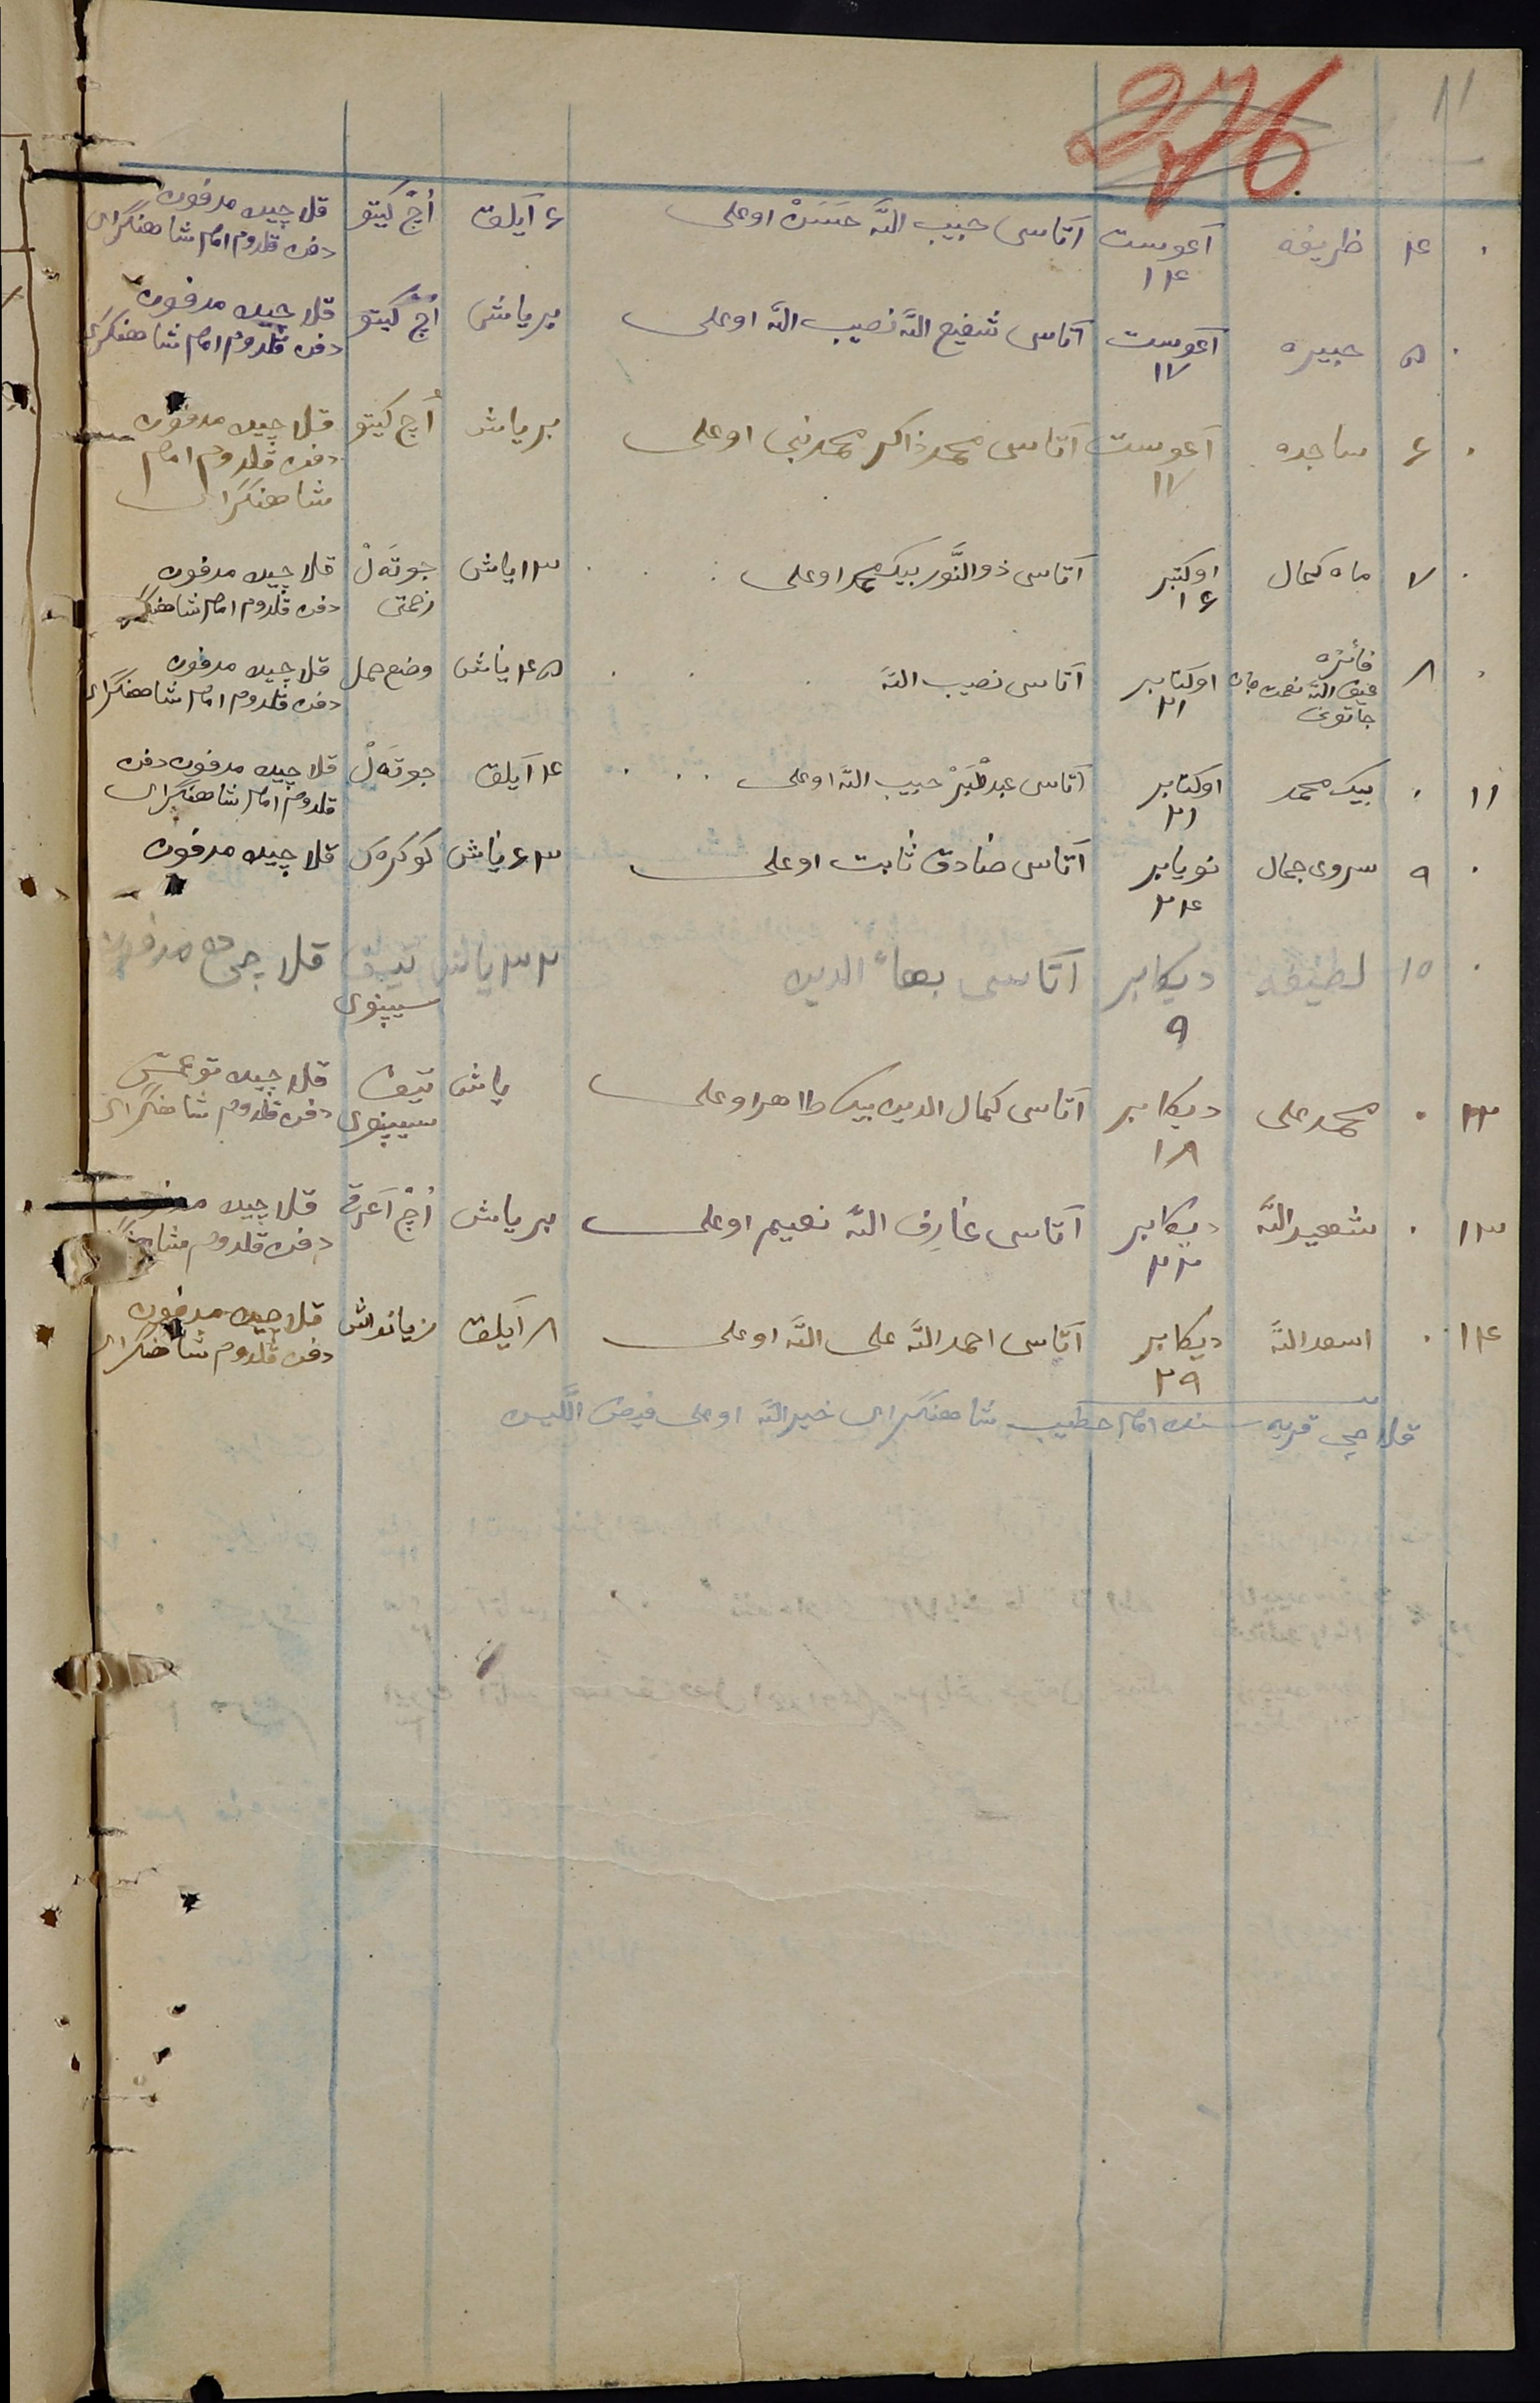 11
276
۴ ظریفه آغوست ۱۴ آتاسی حبیب الله حسن اوغلی ۶ آیلق اُچ کیتو قلاچیده مدفون
دفن قلدوم امام شاهنگرای
۵ حبیره آغوست ۱۷ آتاسی شفیع الله نصیب الله اوغلی بر یاش اُچ کیتو قلاچیده مدفون
دفن قلدوم امام شاهنگرای
۶ ساجده آغوست ۱۷ آتاسی محمد ذاکر محمد نبی اوغلی بر یاش اُچ کیتو قلاچیده مدفون
دفن قلدوم امام
شاهنگرای
۷ ماه کمال اوکتبر ۱۶ آتاسی ذوالنّور بیک محمد اوغلی ۱۳ یاش جوتَل زحمتی قلاچیده مدفون
دفن قلدوم امام شاهنگرای
۸ فائزه جان خاتونی اوکتابر ۲۱ آتاسی نصیب الله ۴۵ یاش وضع حمل قلاچیده مدفون
دفن قلدوم امام شاهنگرای
۱۱ بیک محمد اوکتابر ۲۱ آتاسی حبیب الله اوغلی ۴ آیلق جوتَل قلاچیده مدفون دفن
قلدوم امام شاهنگرای
۹ سروی جمال نویابر ۲۴ آتاسی صادق ثابت اوغلی ۶۳ یاش کوکرک قلاچیده مدفون
۱۵ لطیفه دیکابر ۹ آتاسی بهاءالدین ۳۲ یاش تیف سیپنوی قلاچی ده مدفون
۲۲ محمد علی دیکابر ۱۸ آتاسی کمال الدین بیک طاهر اوغلی یاش تیف سیپنوی قلاچیده توغمش
دفن قلدوم شاهنگرای
۱۳ شهید الله دیکابر ۲۲ آتاسی عارف الله نعیم اوغلی بر یاش اُچ آغرق قلاچیده مدفون
دفن قلدوم
۱۴ اسعد الله دیکابر ۲۹ آتاسی احمد الله علی الله اوغلی ۸ آیلق زیانداش قلاچیده مدفون
دفن قلدوم شاهنگرای
قلاچی قریه سنده امام خطیب شاهنگرای خیرالله اوغلی